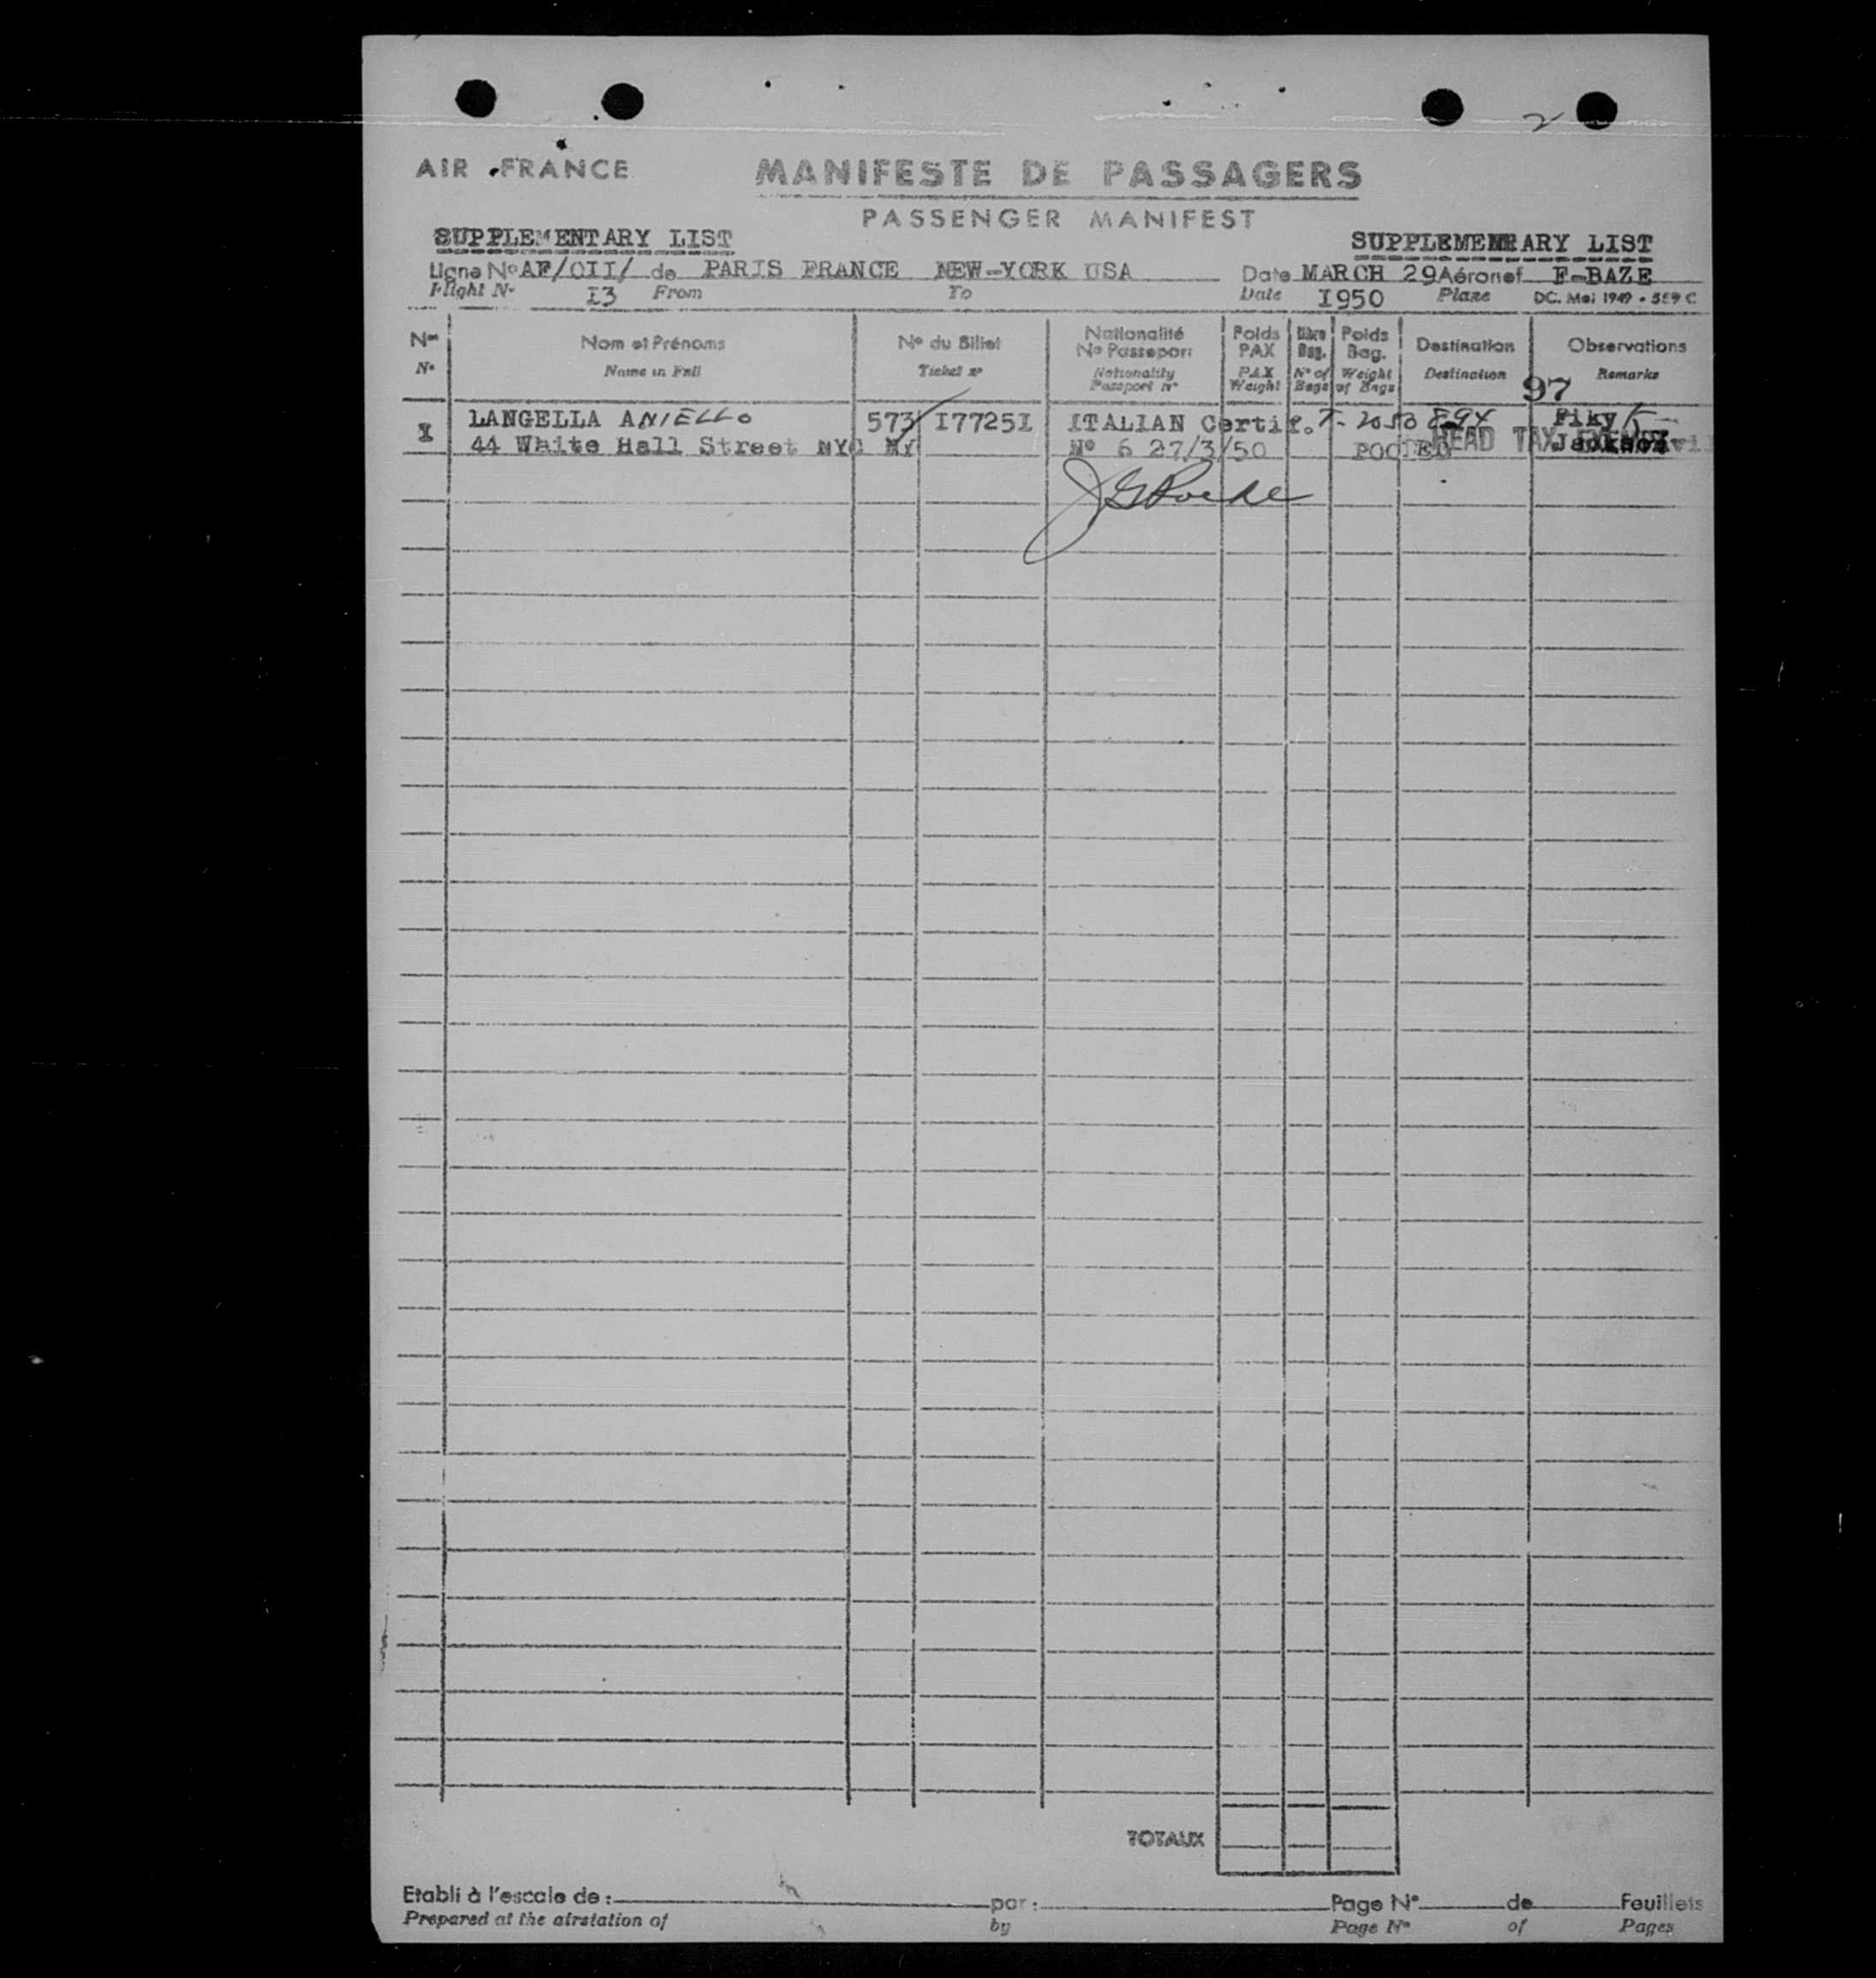 2
AIR FRANCE
MANIFESTE DE PASSAGERS
PASSENGER MANIFEST
SUPPLEMENTARY LIST
SUPPLEMENTARY LIST
Ligne No AF/OII/ de PARIS FRANCE NEW-YORK USA Date MARCH 29 Aéronef F-BAZE
Flight No I3 From To Date I950 Plane DC. Mai 1949 - 559 C
Nos Nom et Prénoms No du Billet Nationalité No Passeport Poids PAX Nbre Bag. Poids Bag. Destination Observations
No Name in Full Ticket no Nationality Passport No PAX Weight No of Bags Weight of Bags Destination Remarks
97
I LANGELLA ANIELLO 573 I7725I ITALIAN Certif. T-2050894 Piky
44 White Hall Street NYC NY No 6 27/3/50 HEAD TAX
TOTAUX
Etabli à l'escale de : par : Page No de Feuillets
Prepared at the airstation of by Page No of Pages